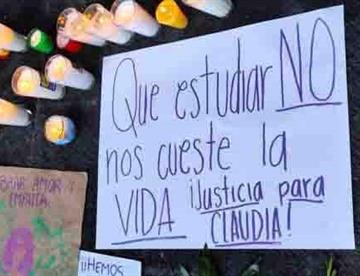 Que estudiar NO
nos cueste la
VIDA ¡Justicia para
CLAUDIA!
AMOR Y
¡¡HEMOS